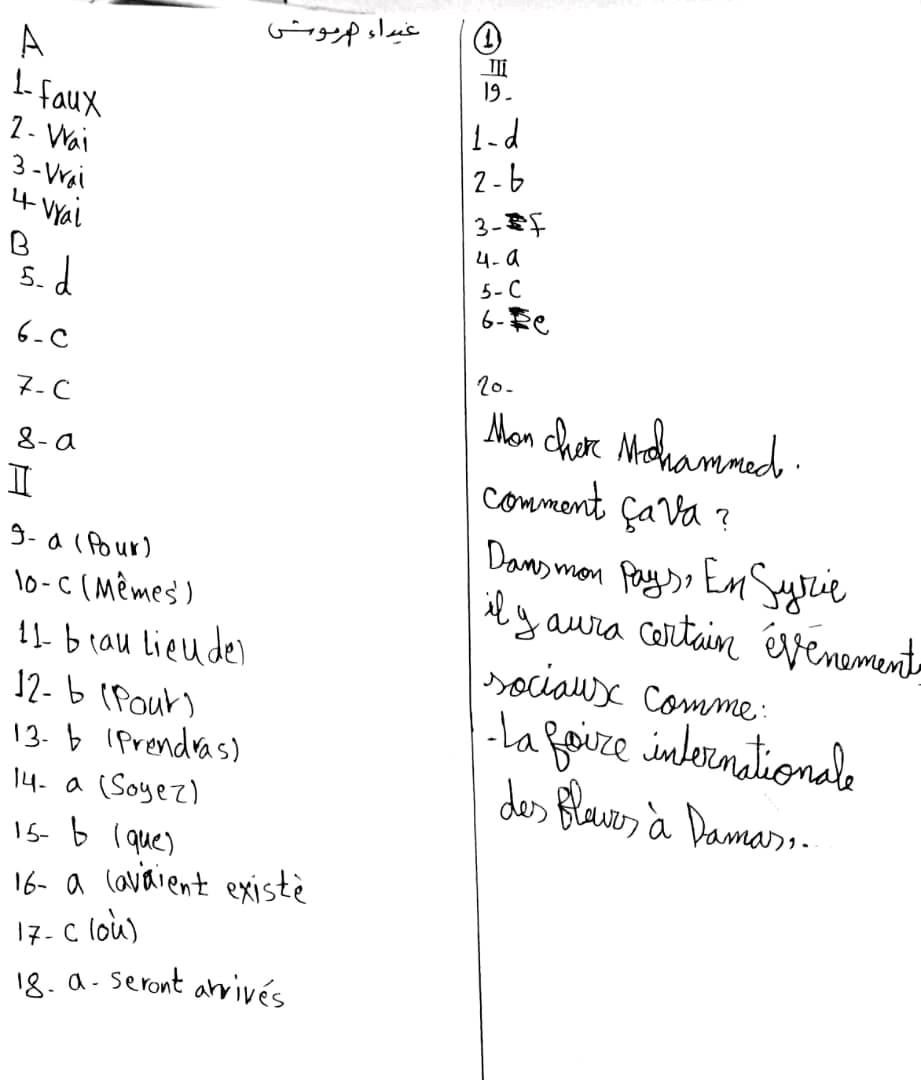 غيداء
A
1- faux
2- Vrai
3- Vrai
4- Vrai
B
5- d
6- c
7- C
8- a
II
9- a (Pour)
10- C (Mêmes)
11- b (au lieu de)
12- b (Pour)
13- b (Prendras)
14- a (Soyez)
15- b (que)
16- a (avaient existè
17- C (où)
18. a- seront arrivés
1
III
19-
1- d
2- b
3- f
4- a
5- C
6- e
20-
Mon cher Mohammed.
comment ça va ?
Dans mon Pays, En Syrie
il y aura certain évènement
sociaux comme:
- La foire internationale
des fleurs à Damas,.